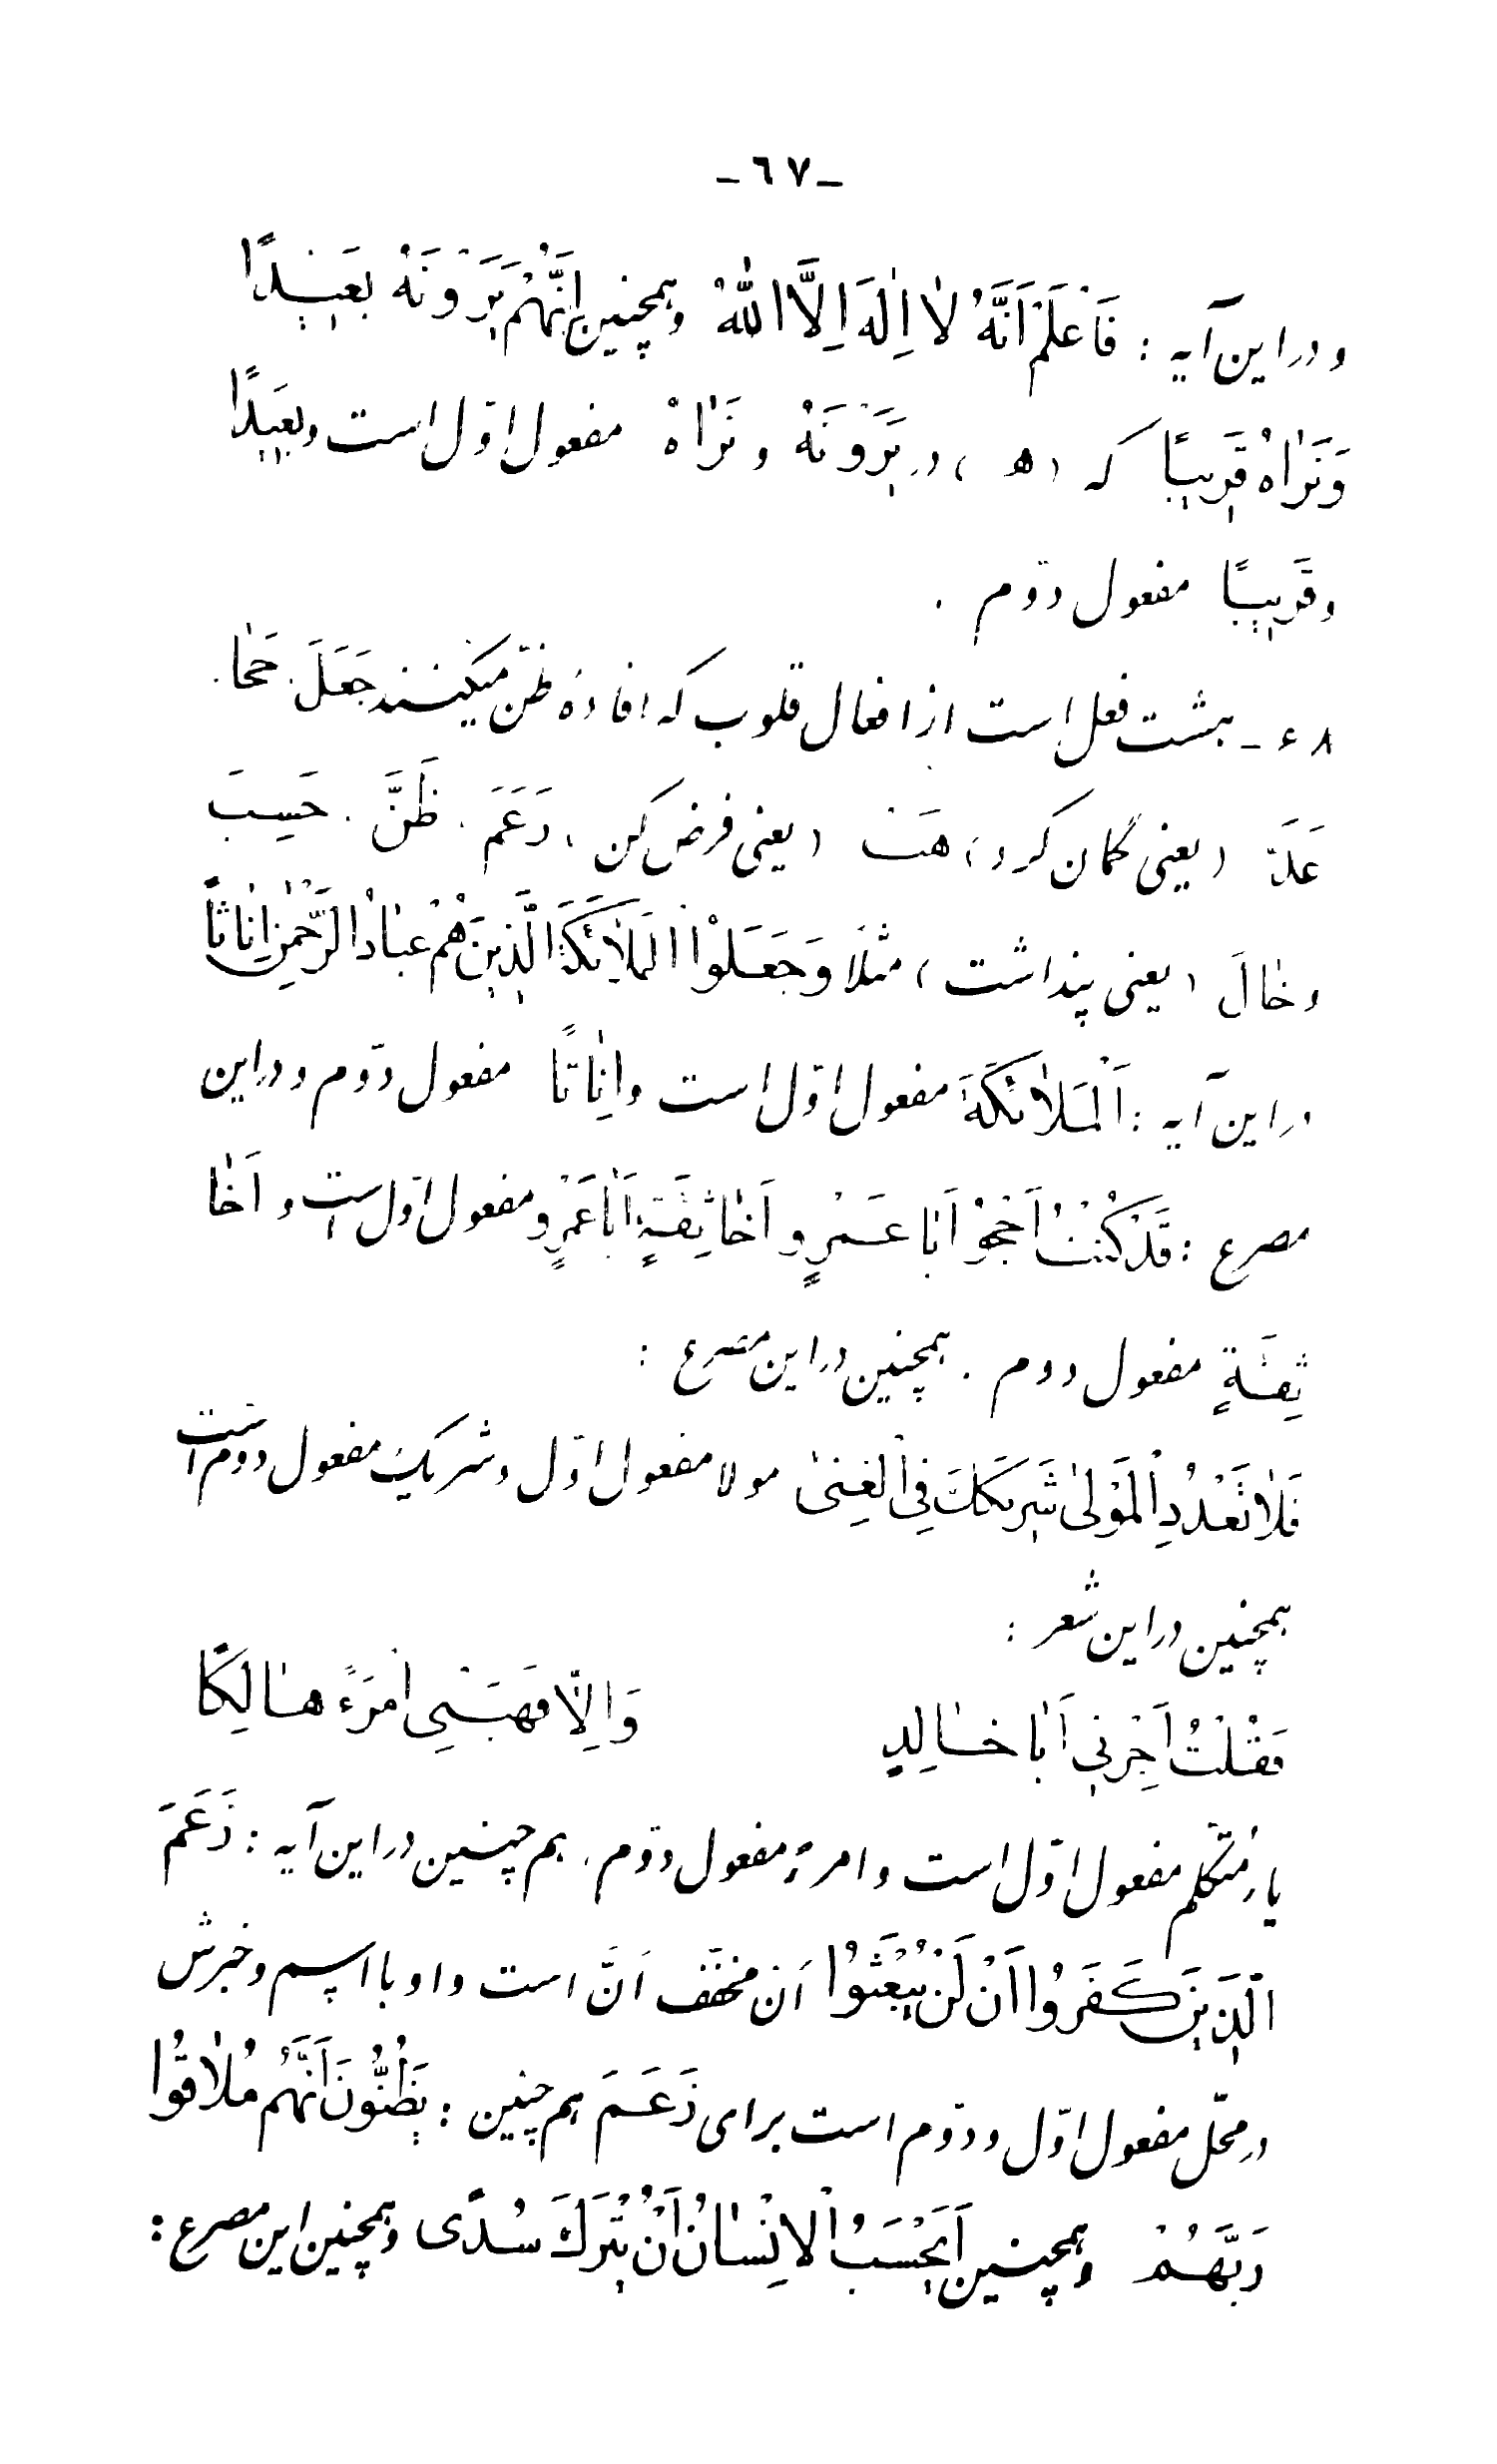 -٦٧-
و در این آیه : فَاعْلَمْ اَنَّهُ لٰا اِلٰهَ اِلَّا اللّٰهُ وهمچنین اِنَّهُمْ يَرَوْنَهُ بَعيٖدًا
وَنَرٰاهُ قَريٖبًا که (ه) در يَرَوْنَهُ و نَرٰاهُ مفعول اوّل است وبَعيٖدًا
وقَريٖبًا مفعول دوّم .
٤٨ - هشت فعل است از افعال قلوب که افادهٔ ظنّ میکنند جَعَلَ . حَجٰا .
عَدَّ (یعنی گمان کرد) هَبْ (یعنی فرض کن) زَعَمَ . ظَنَّ . حَسِبَ
وخٰالَ (یعنی پنداشت) مثلًا وَجَعَلُوا الْمَلٰائِكَةَ الَّذيٖنَ هُمْ عِبٰادُ الرَّحْمٰنِ اِنٰاثًا
در این آیه : اَلْمَلٰائِكَةَ مفعول اوّل است واِنٰاثًا مفعول دوّم و در این
مصرع : قَدْ كُنْتُ اَحْجُوْ اَبٰا عَمْرٍو اَخٰا ثِقَةٍ اَبٰا عَمْرٍو مفعول اوّل است و اَخٰا
ثِقَةٍ مفعول دوم . همچنین در این مصرع :
فَلٰا تَعْدُدِ الْمَوْلىٰ شَريٖكَكَ فِى الْغِنىٰ مولا مفعول اوّل و شریک مفعول دوم است
همچنین در این شعر :
فَقُلْتُ اَجِرْنيٖ اَبٰا خٰالِدٍ وَاِلّٰا فَهَبْنيٖ امْرَءً هٰالِكًا
یاء متکلم مفعول اوّل است و امرءً مفعول دوّم . هم چنین در این آیه : زَعَمَ
الَّذيٖنَ كَفَرُوا اَنْ لَنْ يُبْعَثُوا اَن مخفّف اَنَّ است و او با اسم و خبرش
در محلّ مفعول اوّل و دوّم است برای زَعَمَ هم چنین : يَظُنُّونَ اَنَّهُمْ مُلٰاقُوا
رَبَّهُمْ وهمچنین اَيَحْسَبُ الْاِنْسٰانُ اَنْ يُتْرَكَ سُدًى وهمچنین این مصرع :